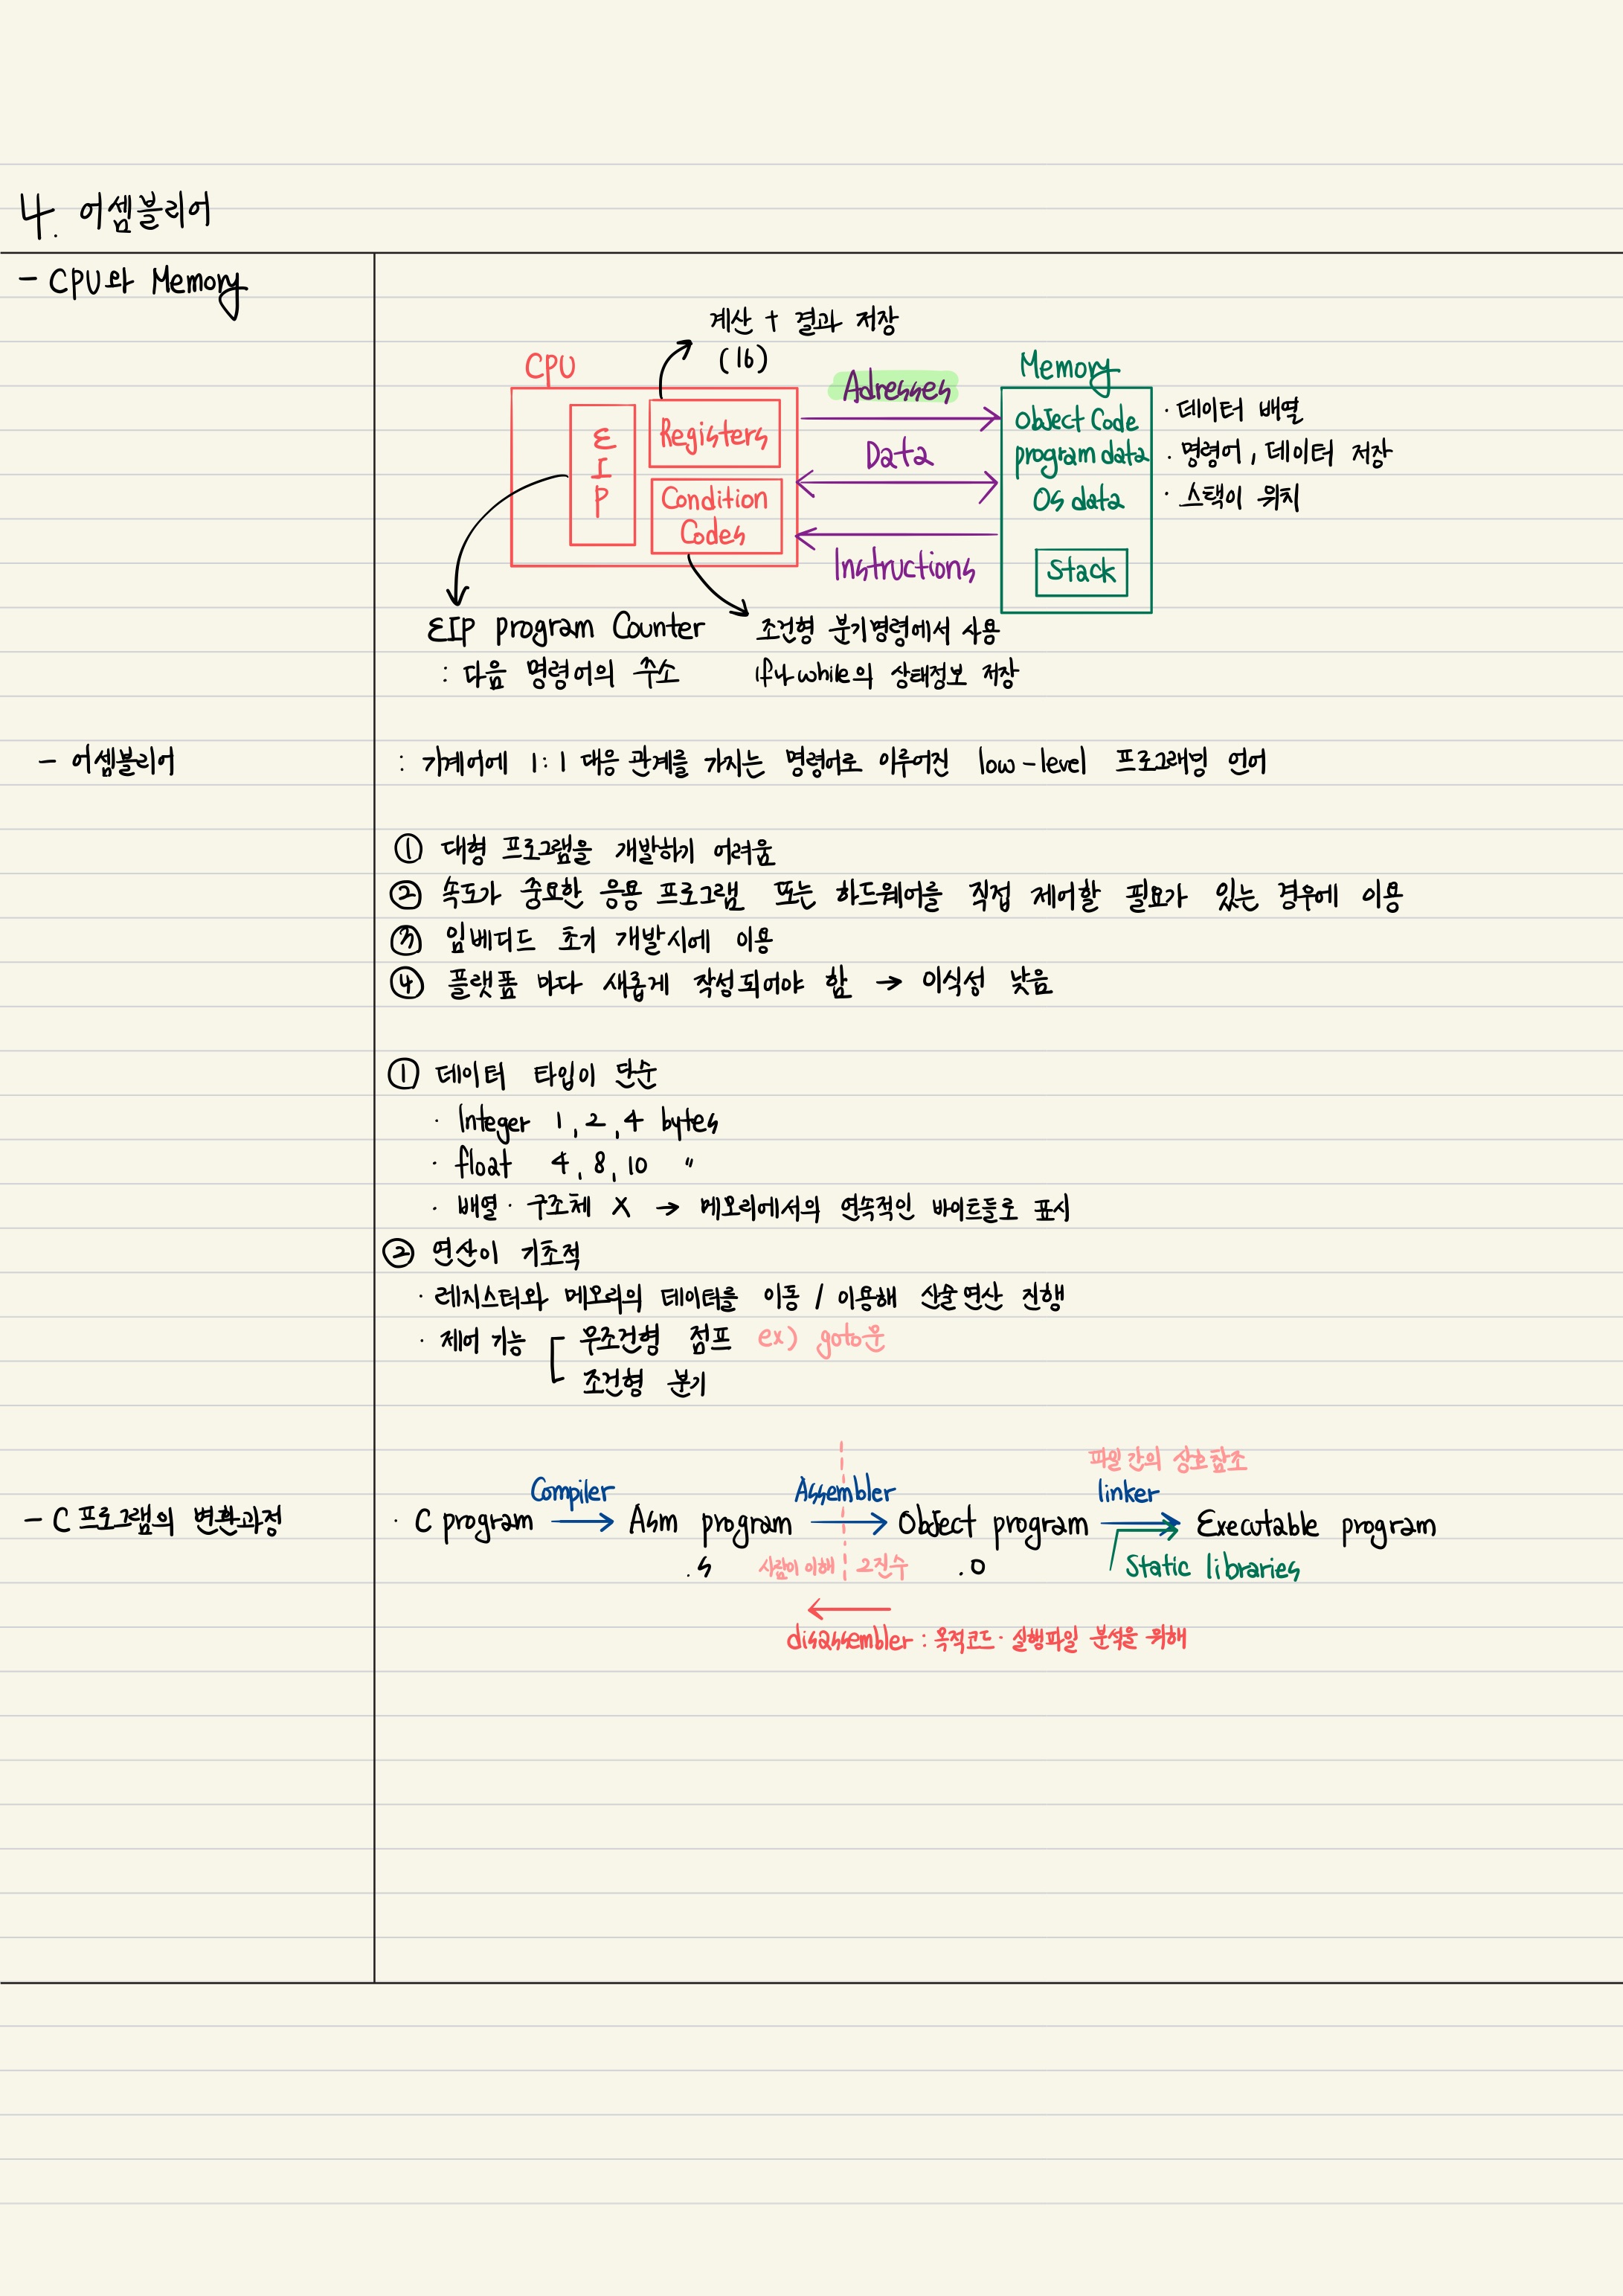 4. 어셈블리어
- CPU와 Memory
계산 + 결과 저장
(16)
CPU
EIP
Registers
Condition
Codes
Adresses
Data
Instructions
Memory
Object Code
program data
OS data
Stack
· 데이터 배열
· 명령어, 데이터 저장
· 스택이 위치
EIP program Counter
: 다음 명령어의 주소
조건형 분기명령에서 사용
if나 while의 상태정보 저장
- 어셈블리어
: 기계어에 1:1 대응 관계를 가지는 명령어로 이루어진 low-level 프로그래밍 언어
① 대형 프로그램을 개발하기 어려움
② 속도가 중요한 응용 프로그램 또는 하드웨어를 직접 제어할 필요가 있는 경우에 이용
③ 임베디드 초기 개발시에 이용
④ 플랫폼 마다 새롭게 작성되어야 함 → 이식성 낮음
① 데이터 타입이 단순
· Integer 1, 2, 4 bytes
· float 4, 8, 10 "
· 배열 · 구조체 X → 메모리에서의 연속적인 바이트들로 표시
② 연산이 기초적
· 레지스터와 메모리의 데이터를 이동 / 이용해 산술연산 진행
· 제어 기능
무조건형 점프 ex) goto문
조건형 분기
- C 프로그램의 변환과정
파일 간의 상호참조
Compiler Assembler linker
· C program → Asm program → Object program → Executable program
.s 사람이 이해 2진수 .o Static libraries
disassembler : 목적코드 · 실행파일 분석을 위해